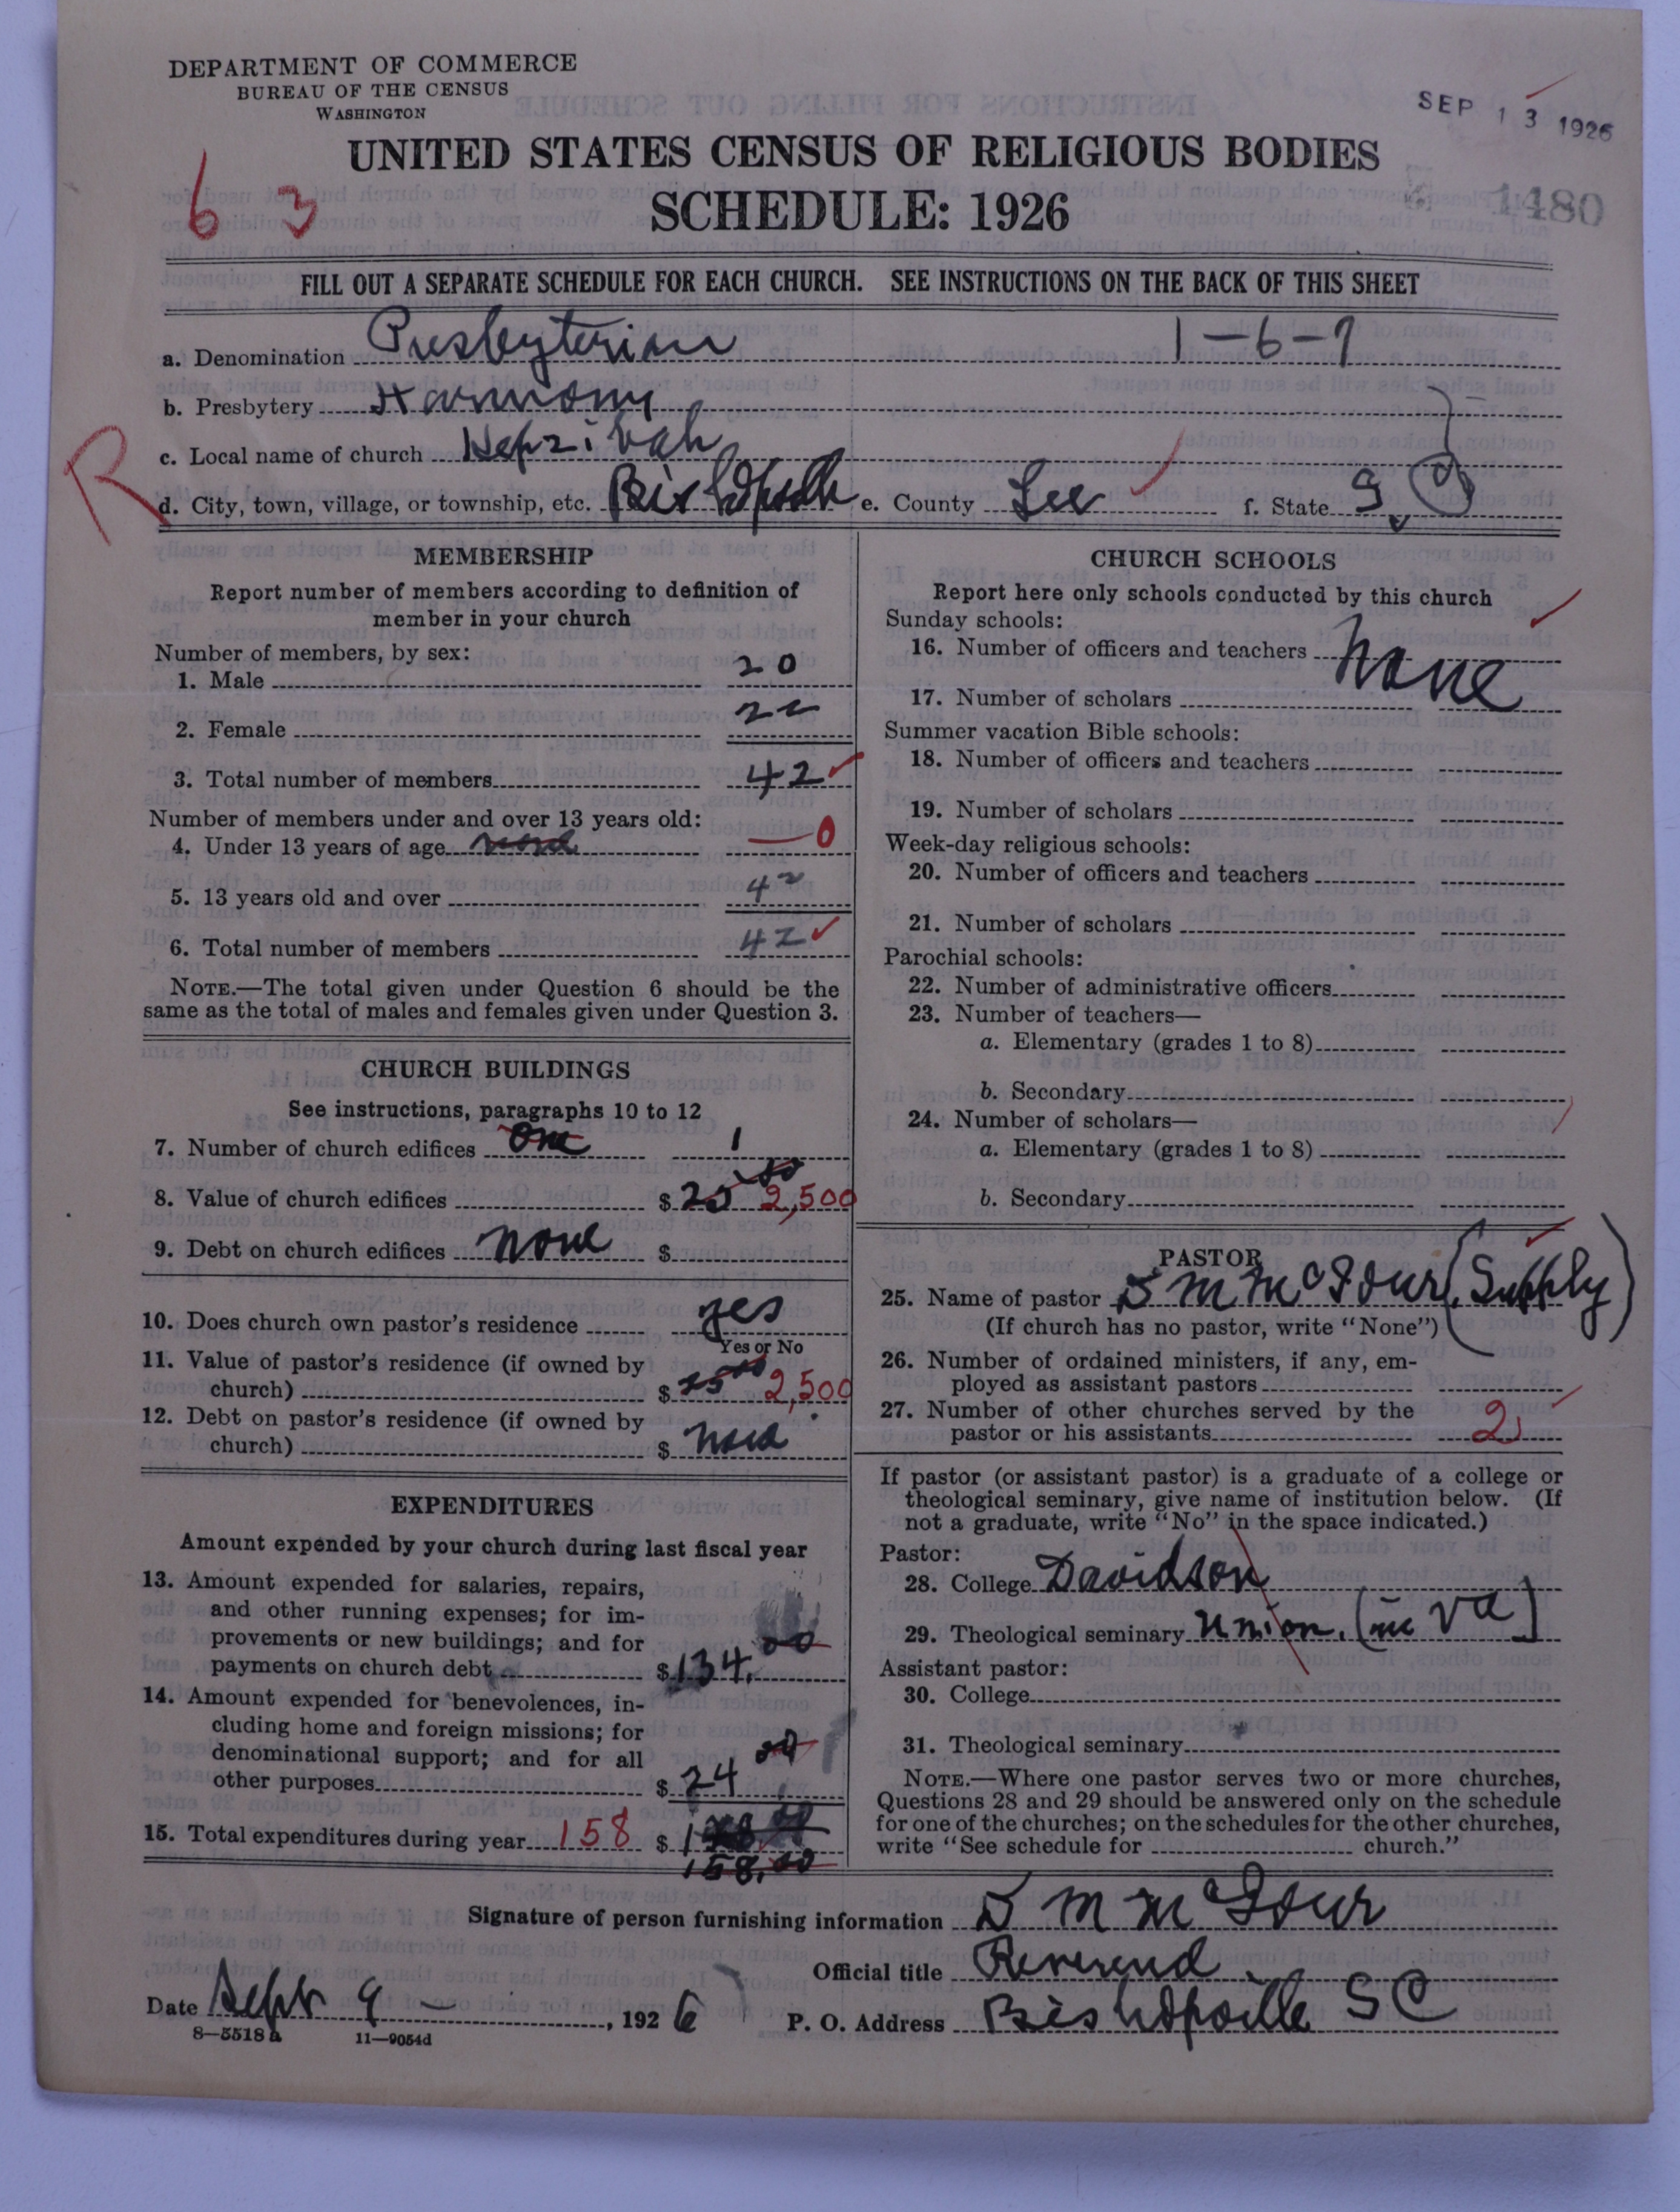 DEPARTMENT OF COMMERCE
BUREAU OF THE CENSUS
WASHINGTON
SEP 13 1926
UNITED STATES CENSUS OF RELIGIOUS BODIES
63
SCHEDULE: 1926
1480
FILL OUT A SEPARATE SCHEDULE FOR EACH CHURCH. SEE INSTRUCTIONS ON THE BACK OF THIS SHEET
a. Denomination Presbyterian 1-6-7
b. Presbytery Harmony
c. Local name of church Hepzibah
R
d. City, town, village, or township, etc. Bishopville e. County Lee f. State S. C
MEMBERSHIP
Report number of members according to definition of
member in your church
Number of members, by sex:
1. Male 20
2. Female 22
3. Total number of members 42
Number of members under and over 13 years old:
4. Under 13 years of age none 0
5. 13 years old and over 42
6. Total number of members 42
NOTE.—The total given under Question 6 should be the
same as the total of males and females given under Question 3.
CHURCH BUILDINGS
See instructions, paragraphs 10 to 12
7. Number of church edifices one 1
8. Value of church edifices $ 2,500
9. Debt on church edifices none $
10. Does church own pastor's residence yes
Yes or No
11. Value of pastor's residence (if owned by
church) $ 2500 2,500
12. Debt on pastor's residence (if owned by
church) $ none
EXPENDITURES
Amount expended by your church during last fiscal year
13. Amount expended for salaries, repairs,
and other running expenses; for im-
provements or new buildings; and for
payments on church debt $ 134.00
14. Amount expended for benevolences, in-
cluding home and foreign missions; for
denominational support; and for all
other purposes $ 24 00
15. Total expenditures during year 158 $
158.00
CHURCH SCHOOLS
Report here only schools conducted by this church
Sunday schools:
16. Number of officers and teachers None
17. Number of scholars
Summer vacation Bible schools:
18. Number of officers and teachers
19. Number of scholars
Week-day religious schools:
20. Number of officers and teachers
21. Number of scholars
Parochial schools:
22. Number of administrative officers
23. Number of teachers—
a. Elementary (grades 1 to 8)
b. Secondary
24. Number of scholars—
a. Elementary (grades 1 to 8)
b. Secondary
PASTOR
25. Name of pastor S M McIour (Supply)
(If church has no pastor, write "None")
26. Number of ordained ministers, if any, em-
ployed as assistant pastors
27. Number of other churches served by the
pastor or his assistants 2
If pastor (or assistant pastor) is a graduate of a college or
theological seminary, give name of institution below. (If
not a graduate, write "No" in the space indicated.)
Pastor:
28. College Davidson
29. Theological seminary Union. (in Va)
Assistant pastor:
30. College
31. Theological seminary
NOTE.—Where one pastor serves two or more churches,
Questions 28 and 29 should be answered only on the schedule
for one of the churches; on the schedules for the other churches,
write "See schedule for church."
Signature of person furnishing information S M McIour
Official title Reverend
Date Sept 9 - , 1926 P. O. Address Bishopville S C
8—5518a 11—9054d